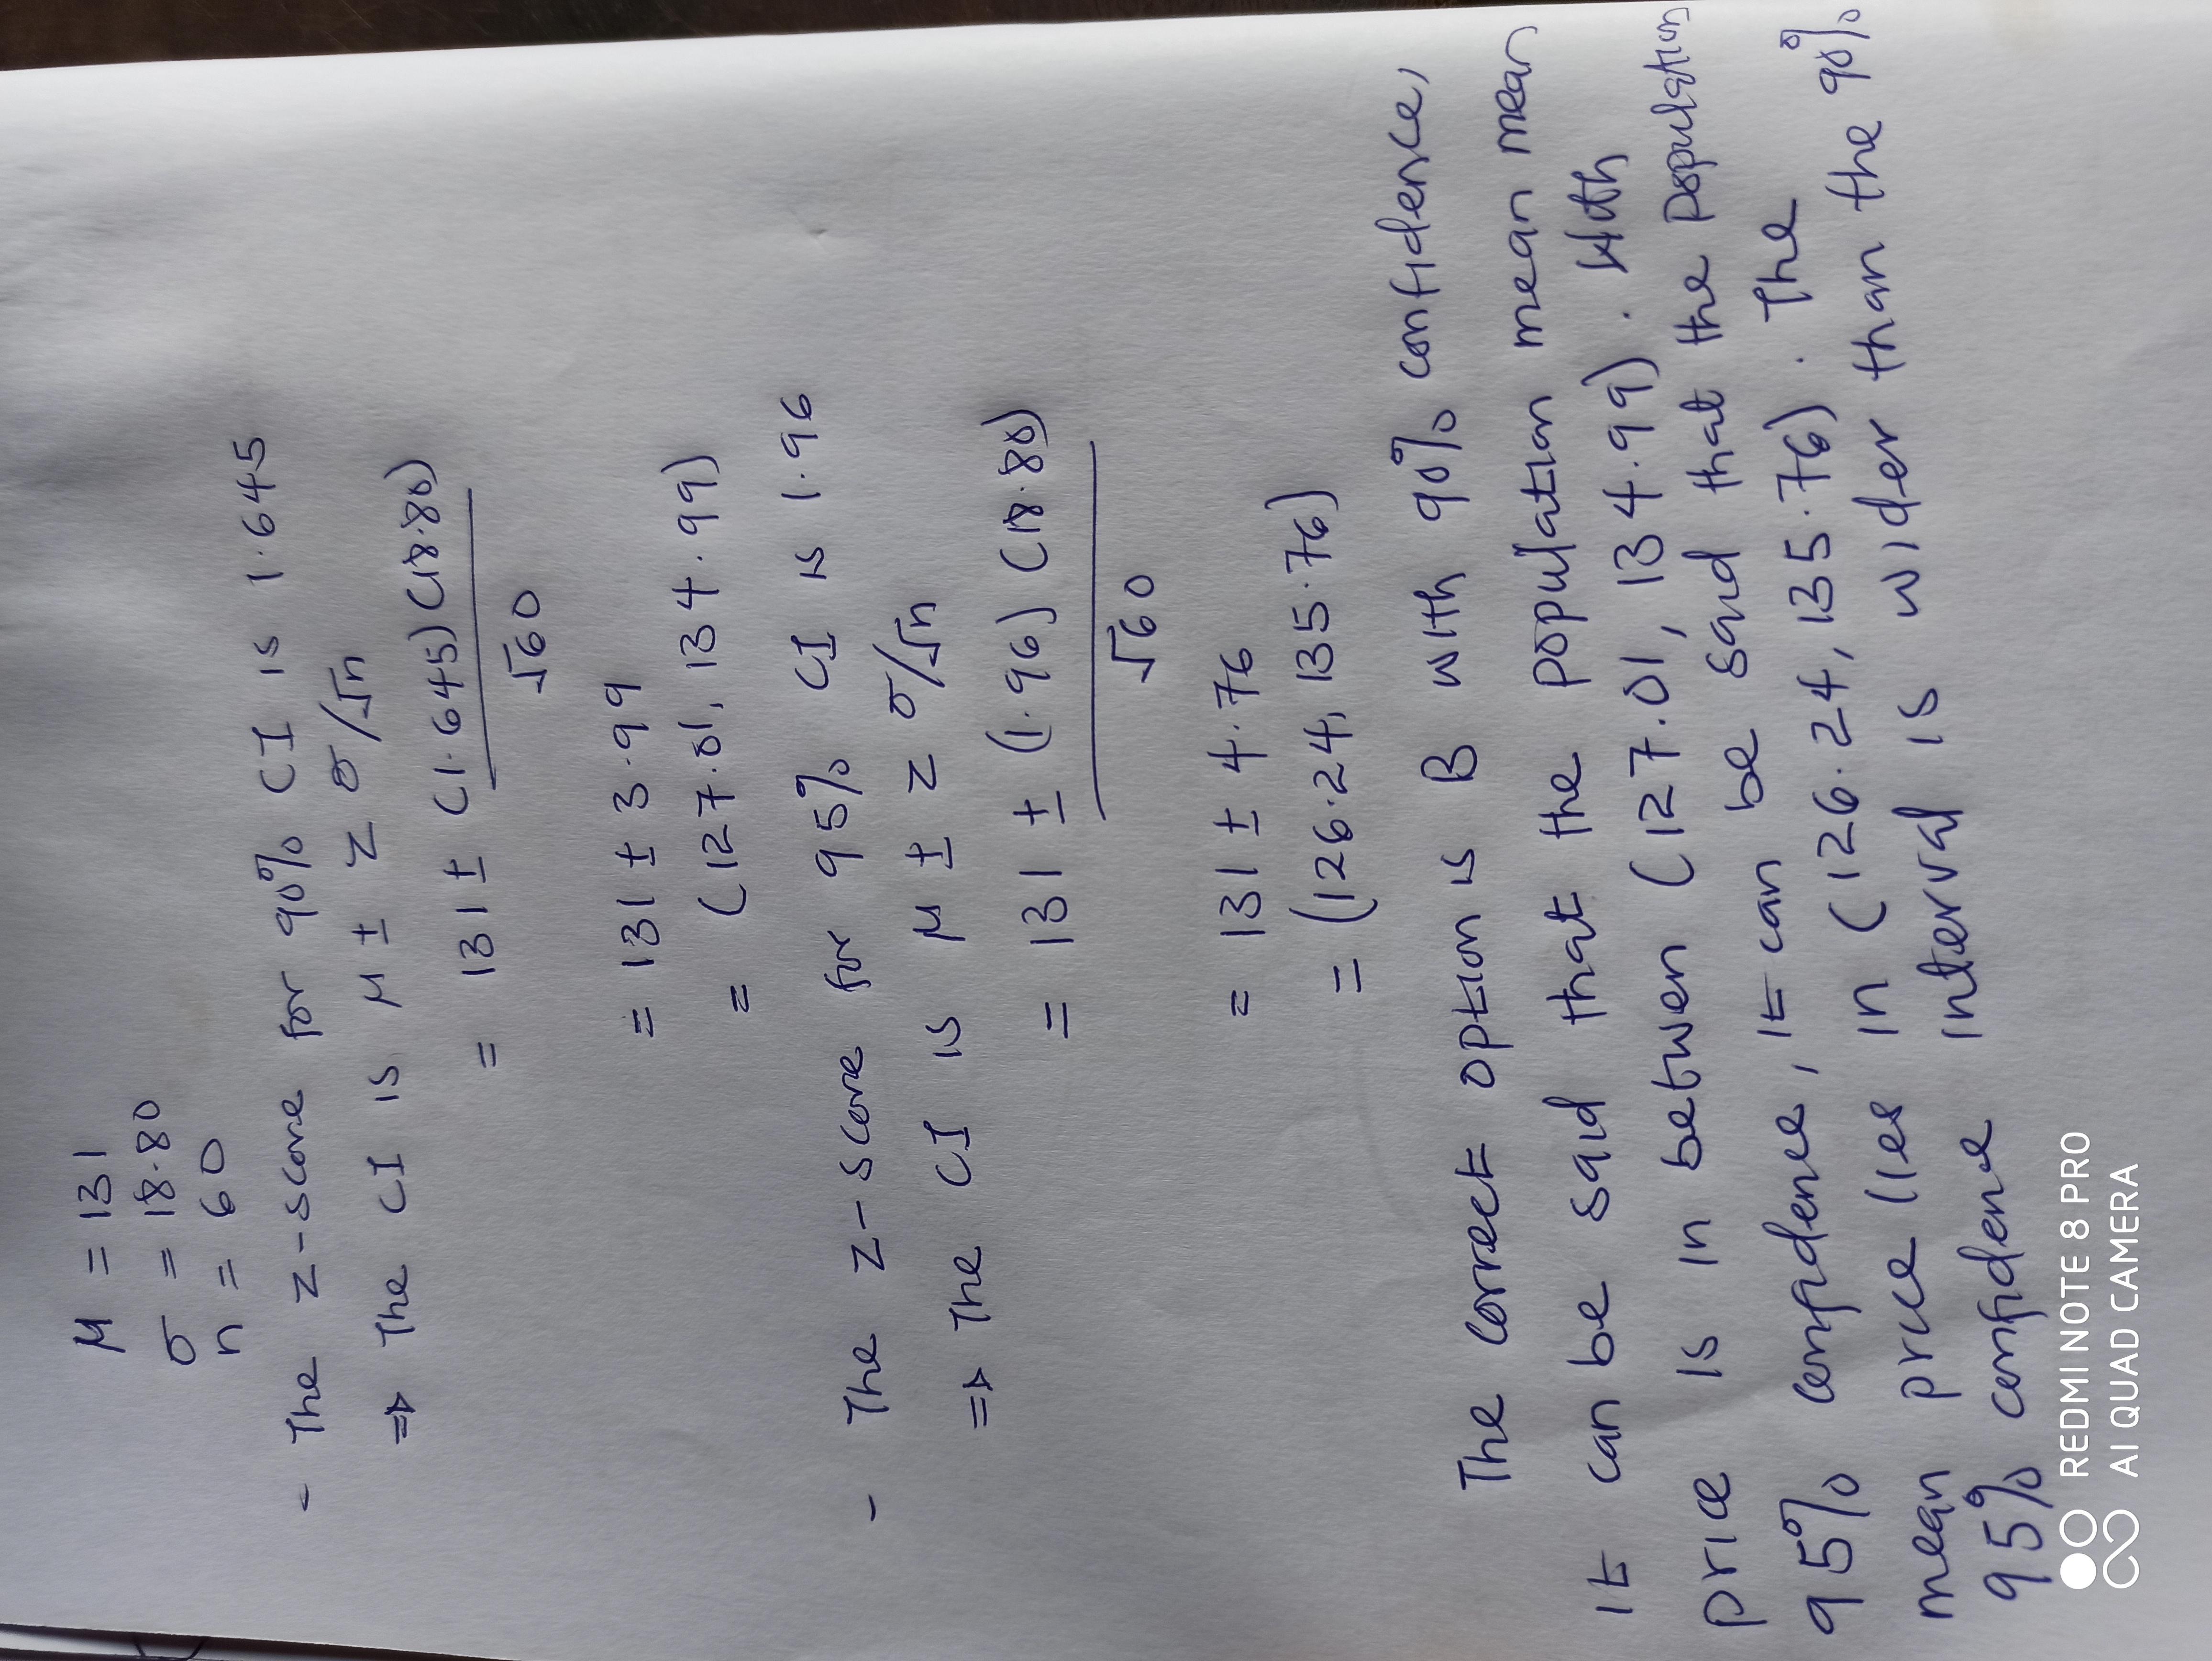 μ = 131
σ = 18.80
n = 60
- The z-score for 90% CI is 1.645
⇒ The CI is μ ± z σ/√n
= 131 ± (1.645)(18.80)
√60
= 131 ± 3.99
= (127.01, 134.99)
- The z-score for 95% CI is 1.96
⇒ The CI is μ ± z σ/√n
= 131 ± (1.96) (18.80)
√60
= 131 ± 4.76
= (126.24, 135.76)
The correct option is B with 90% confidence,
It can be said that the population mean mean
price is in between (127.01, 134.99). With
95% confidence, it can be said that the population
mean price lies in (126.24, 135.76). The
95% confidence interval is wider than the 90%
REDMI NOTE 8 PRO
AI QUAD CAMERA